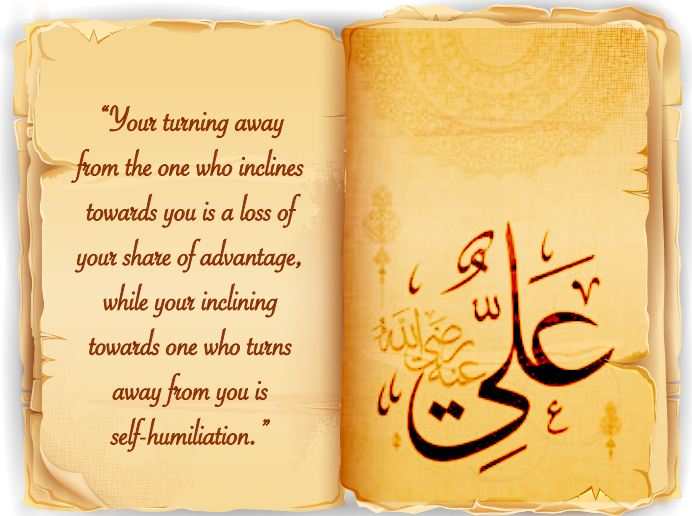 “Your turning away
from the one who inclines
towards you is a loss of
your share of advantage,
while your inclining
towards one who turns
away from you is
self-humiliation.”
عَلِيٌّ
رضي الله عنه